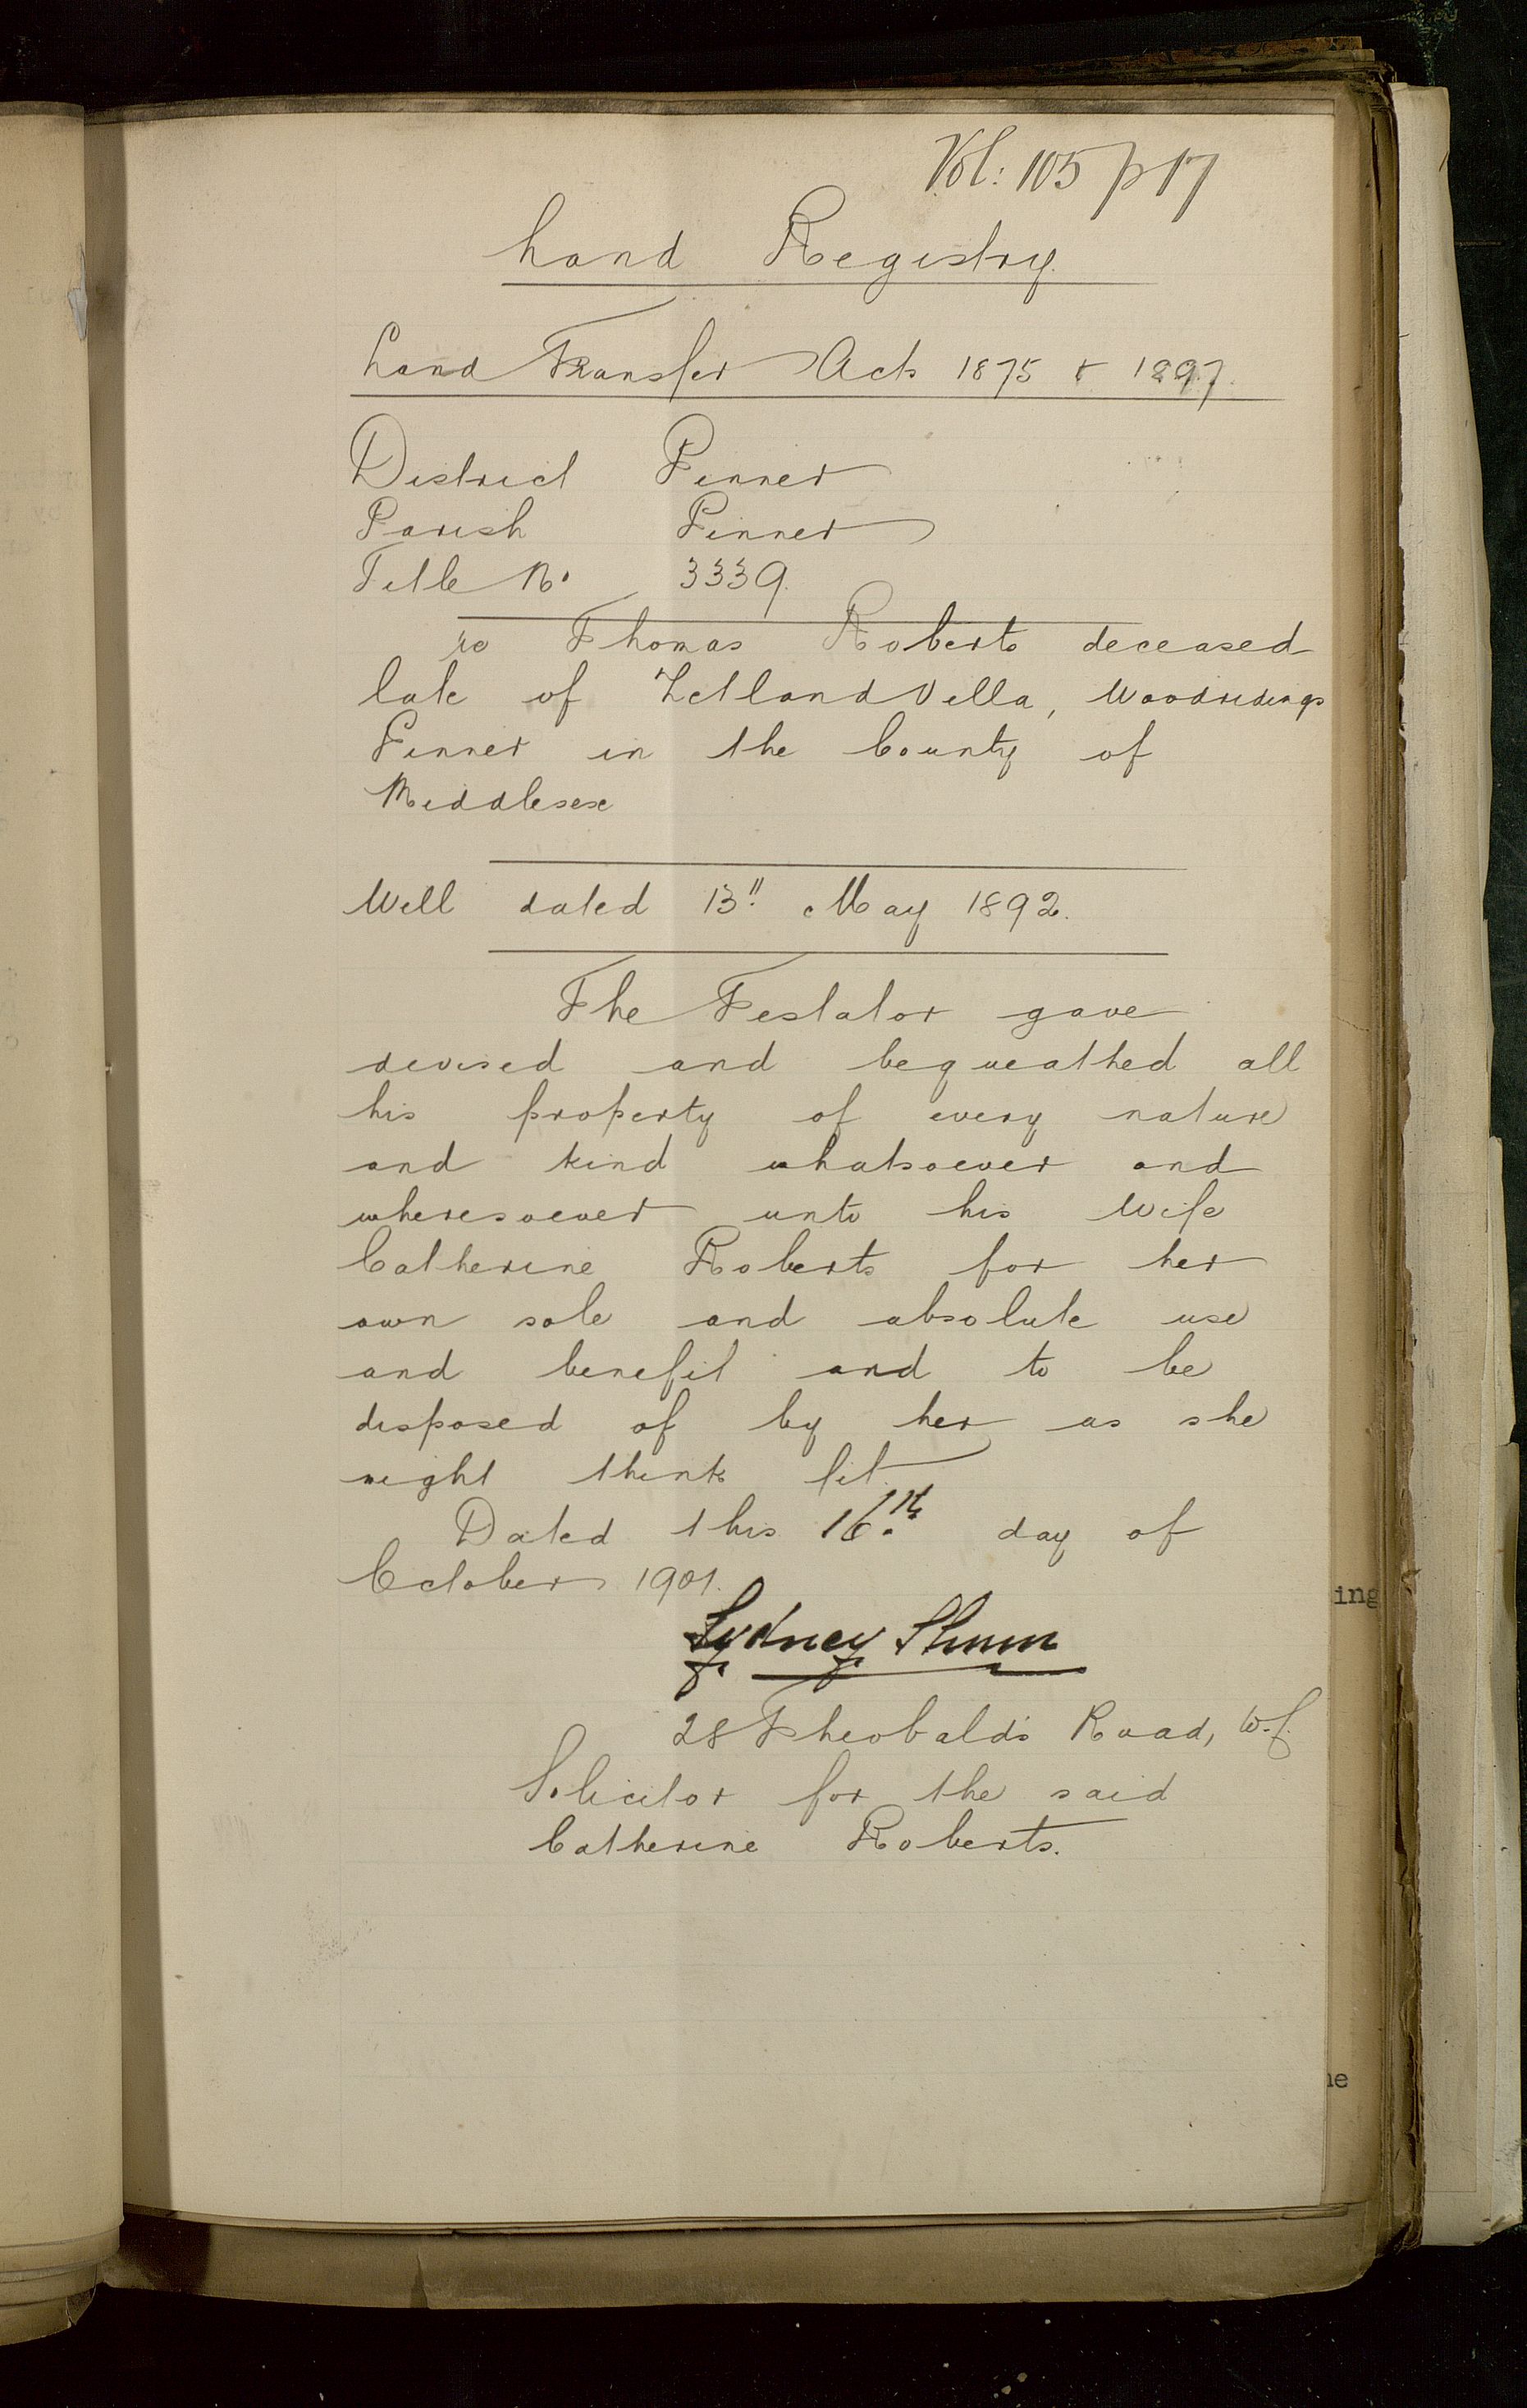 Vol: 105 p 17
Land Registry.
Land Transfer Acts 1875 & 1897.
District Pinner
Parish Pinner
Title No. 3339.
re Thomas Roberts deceased
late of Zetland Villa, Woodridings
Pinner in the County of
Middlesex
Will dated 13" May 1892.
The Testator gave
devised and bequeathed all
his property of every nature
and kind whatsoever and
wheresoever unto his Wife
Catherine Roberts for her
own sole and absolute use
and benefit and to be
disposed of by her as she
might think fit.
Dated this 16th day of
October 1901.
Sydney
28 Theobald's Road, W.C.
Solicitor for the said
Catherine Roberts.
ing